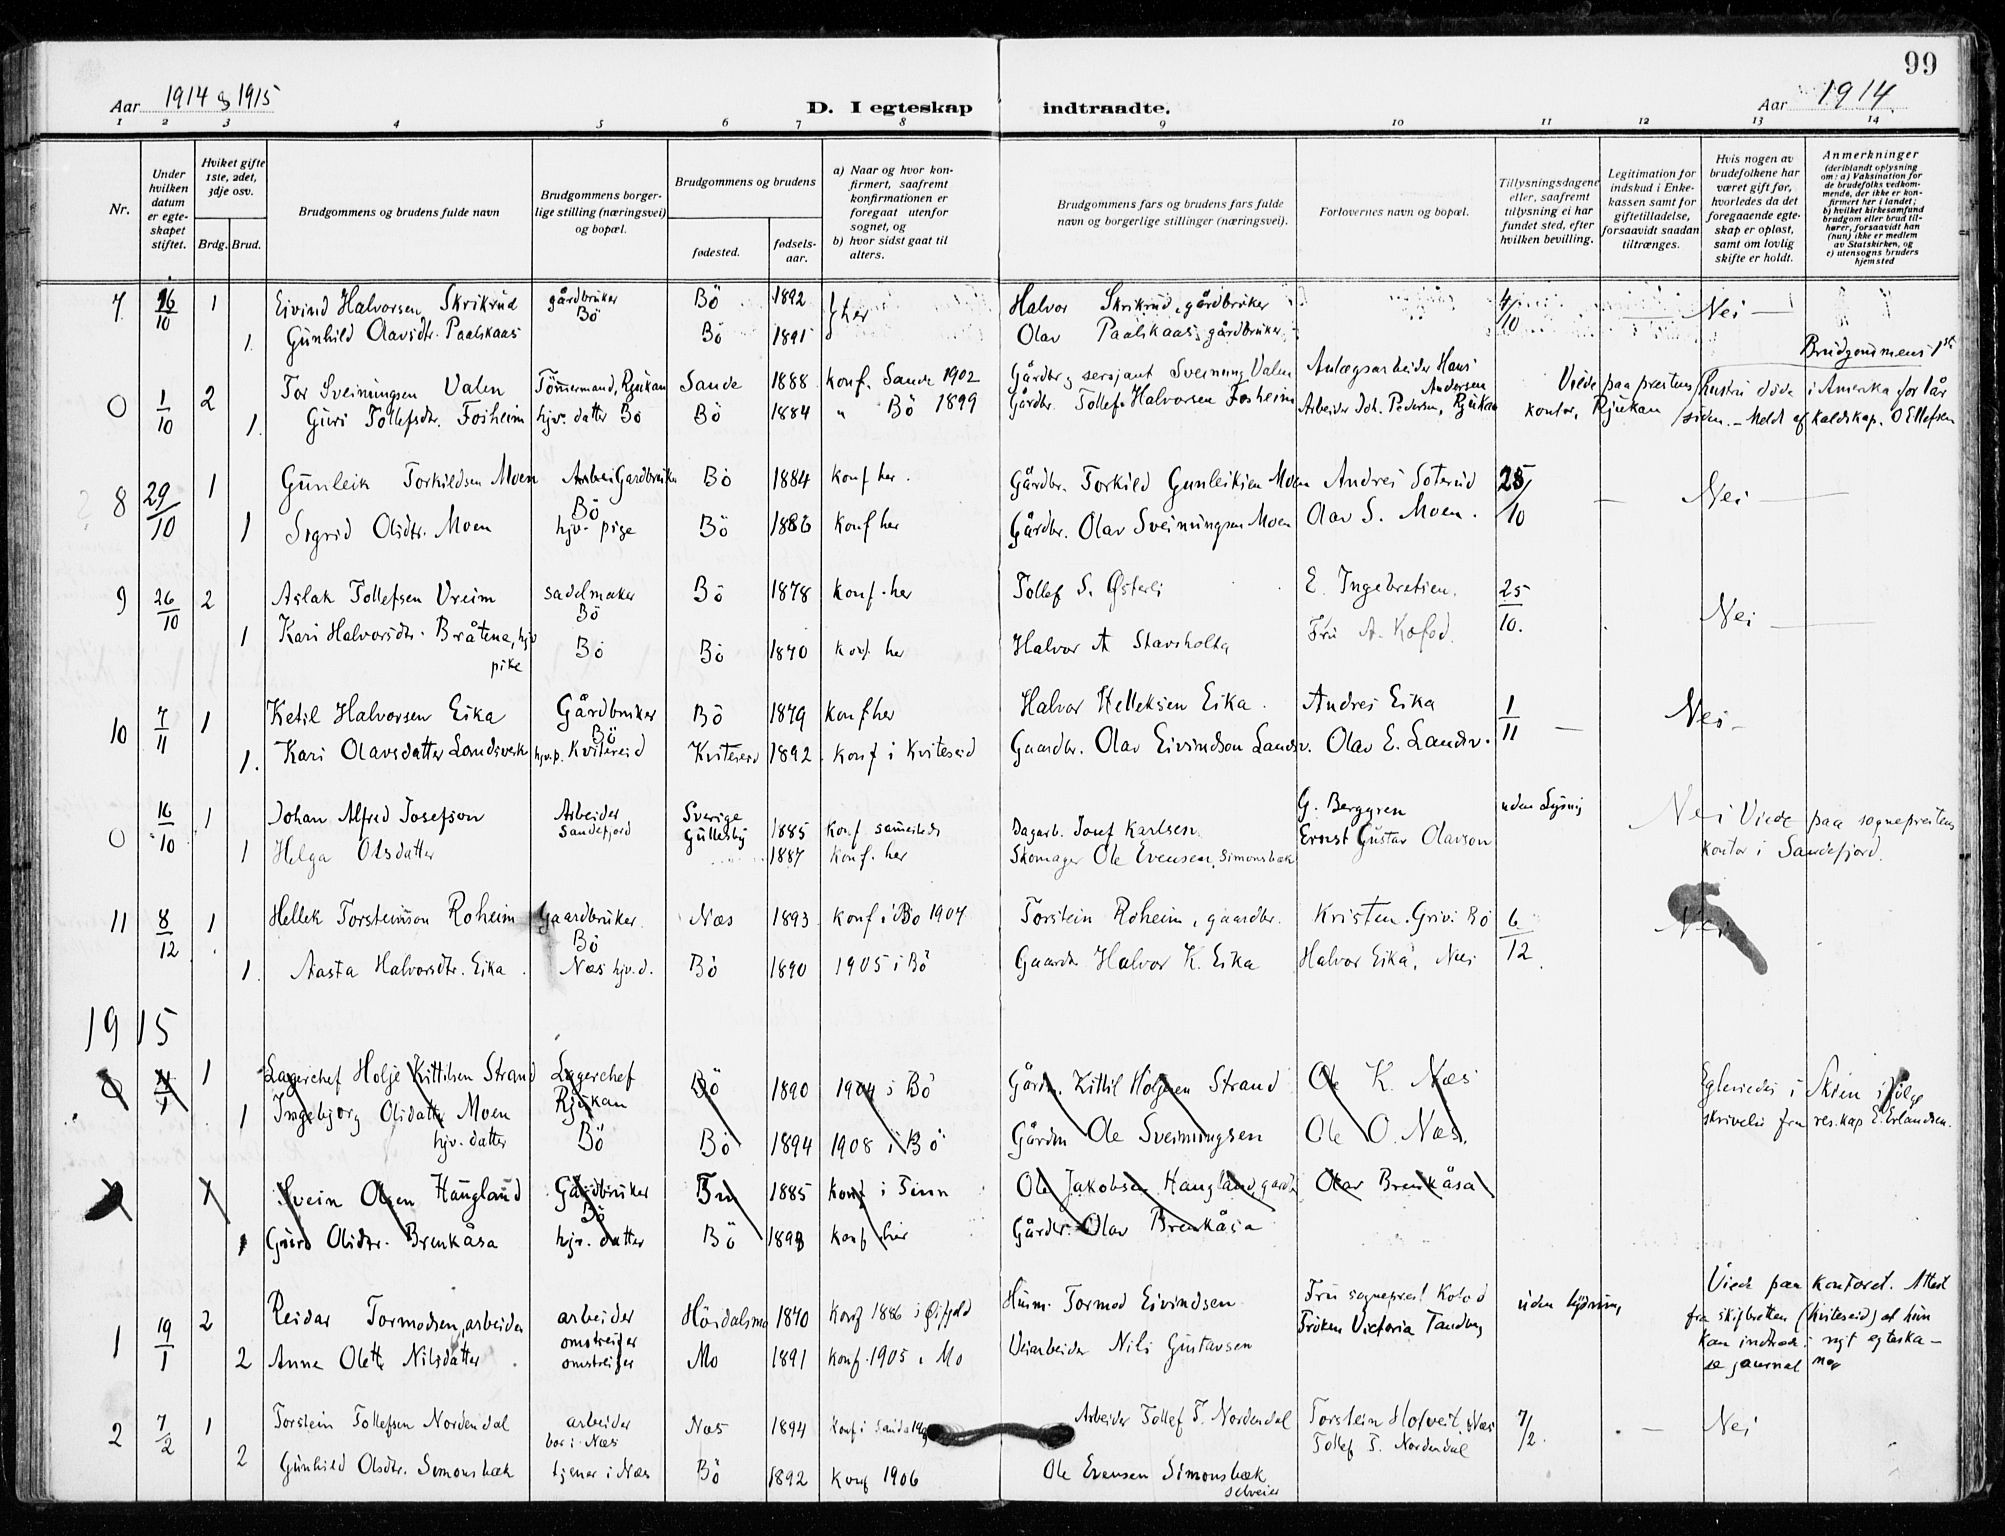 99
Aar 1914 & 1915
D. I egteskap indtraadte.
Aar 1914.
1 2 3 4 5 6 7 8 9 10 11 12 13 14
Nr.
Under hvilken datum er egteskapet stiftet.
Hviket gifte 1ste, 2det, 3dje osv.
Brdg. Brud.
Brudgommens og brudens fulde navn
Brudgommens borgerlige stilling (næringsvei) og bopæl.
Brudgommens og brudens
fødested.
fødselsaar.
a) Naar og hvor konfirmert, saafremt konfirmationen er foregaat utenfor sognet, og
b) hvor sidst gaat til alters.
Brudgommens fars og brudens fars fulde navn og borgerlige stillinger (næringsvei).
Forlovernes navn og bopæl.
Tillysningsdagene eller, saafremt tillysning ei har fundet sted, efter hvilken bevilling.
Legitimation for indskud i Enkekassen samt for giftetilladelse, forsaavidt saadan tiltrænges.
Hvis nogen av brudefolkene har været gift før, hvorledes da det foregaaende egteskap er opløst, samt om lovlig skifte er holdt.
Anmerkninger (deriblandt oplysning om: a) Vaksination for de brudefolks vedkommende, der ikke er konfirmert her i landet; b) hvilket kirkesamfund brudgom eller brud tilhører, forsaavidt han (hun) ikke er medlem av Statskirken, og c) utensogns bruders hjemsted
7 16/10 1 Eivind Halvorsen Skrikrud gårdbruker Bö Bö 1892 } her Halvor Skrikrud, gårdbruker 4/10 Nei —
1 Gunhild Olavsdtr. Paalskaas Bö 1891 Olav Paalskaas, gårdbruker
Brudgommens 1ste
0 1/10 2 Tor Sveinungsen Valen Tömmermand, Rjukan Sande 1888 konf. Sande 1902 Gårdbr. og sersjant Sveinung Valen Anlægsarbeider Hans Andersen Viede paa prestens hustru döde i Amerika for 1 år
1. Guri Tollefsdtr. Forheim hjv. datter Bö Bö 1884 " Bö 1899 Gårdbr. Tollef Halvorsen Forheim Arbeider Joh. Pedersen, Rjukan kontor, Rjukan siden. — Meldt af kaldskap. O Ellefsen
8 29/10 1 Gunleik Torkildsen Moen Gardbruker Bö Bö 1884 konf her. Gårdbr. Torkild Gunleiksen Moen Andres Soterud 25/10 — Nei —
1 Sigrid Olsdtr. Moen hjv. pige Bö 1886 konf her Gårdbr. Olav Sveinungsen Moen Olav S. Moen.
9 26/10 2 Aslak Tollefsen Vreim sadelmaker Bö Bö 1878 konf. her Tollef S. Østerli E. Ingebretsen. 25/10. Nei —
1 Kari Halvorsdtr. Bråtena, hjv pike Bö Bö 1870 konf. her Halvor A Stavsholta Fru A. Kofod.
10 7/11 1 Ketil Halvorsen Eika Gårdbruker Bö Bö 1879 konf her Halvor Helleksen Eika. Andres Eika 1/11 — Nei —
1. Kari Olavsdatter Landsverk hjv.p. Kviteseid Kviteseid 1892. konf i Kviteseid Gaardbr. Olav Eivindson Landsv. Olav E. Landsv.
0 16/10 1 Johan Alfred Josefson Arbeider Sandefjord Sverige Gullesby 1885 konf. samesteds Dagarb. Josef Karlsen. G. Berggren uden Lysning Nei Viede paa sogneprestens
1 Helga Olsdatter 1887 konf. her Skomager Ole Evensen, Simonsbæk Ernst Gustav Olavson kontor i Sandefjord.
11 8/12 1 Hellek Torsteinson Roheim Gaardbruker Bö Næs 1893 konf i Bö 1907 Torstein Roheim, gaardbr. Kristen Grivi Bö 6/12 Nei
1. Aasta Halvorsdtr. Eika Næs hjv.d. Bö 1890 1905 i Bö Gaardbr Halvor K. Eika Halvor Eika, Næs
1915
0 1 Lagerchef Holje Kittilsen Strand Lagerchef Rjukan Bö 1890 1904 i Bö Gårdbr. Kittil Holjesen Strand Ole K. Næs Egteviedes i Skien ifölge
1 Ingebjorg Olsdatter Moen hjv. datter Bö Bö 1894 1908 i Bö Gårdbr Ole Sveinungsen Ole O. Næs. skrivelse fra res.kap E. Erlandsen.
1 Svein Olsen Haugland Gårdbruker Bö Tin 1885 konf i Tinn Ole Jakobsen Haugland, gardb Olav Brenkåsa
1 Guro Olsdtr. Brenkåsa hjv. datter Bö 1893 konf her Gårdbr. Olav Brenkåsa
1 19/1 2 Reidar Tormodsen, arbeider arbeider omstreifer Höidalsmo 1870 konf 1886 i Øifjeld Husm. Tormod Eivindsen Fru sogneprest Kofod uden lysning Viede paa kontoret. Attest
2 Anne Olette Nilsdatter omstreifer Mo 1891 konf. 1905 i Mo Veiarbeider Nils Gustavsen Fröken Victoria Tandberg fra skifteretten (Kviteseid) at hun
kan indtræde i nyt egteska—
se journal
2 7/2 1 Torstein Tollefsen Nordendal arbeider bor i Næs Næs 1894 konf i Sande Arbeider Tollef T. Nordendal Torstein Hofveit, Næs 7/2. — Nei
2 Gunhild Olsdtr. Simonsbæk tjener i Næs Bö 1892 konf 1906 Ole Evensen Simonsbæk selveier Tollef T. Nordendal